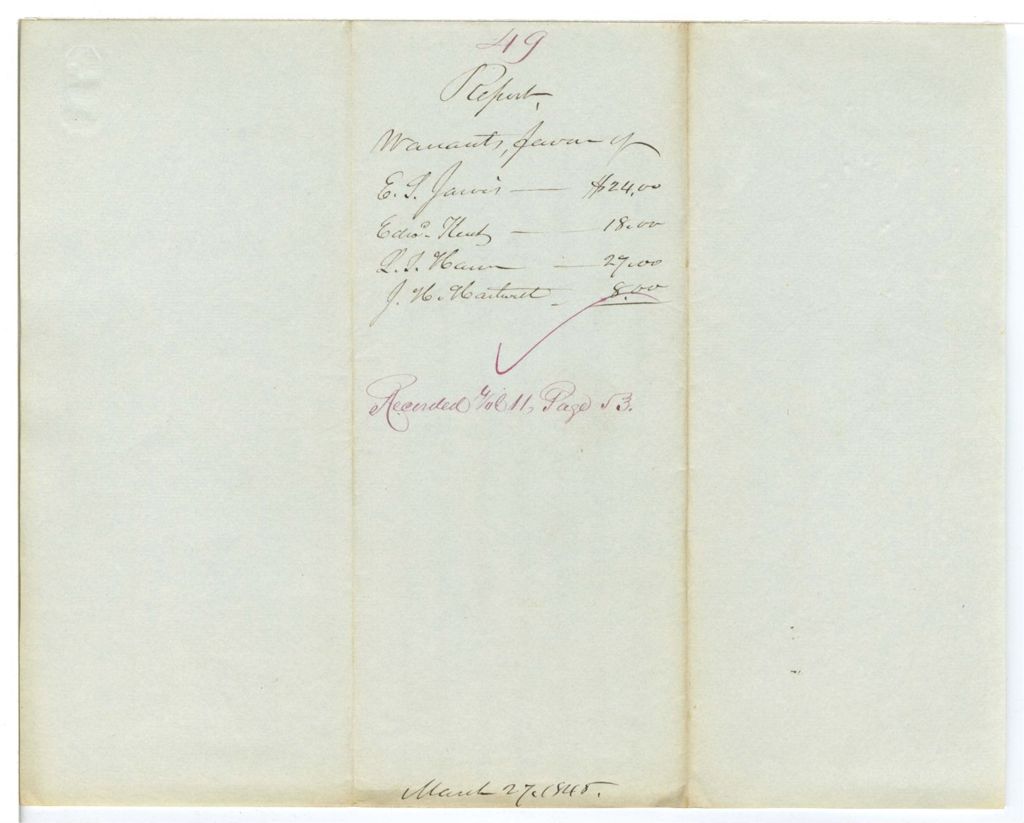 49
Report,
Warrants, favor of
E. S. Jarvis — $24.00
Edwd. Kent — 18.00
— 27.00
J. H. Hartwell — 8.00
Recorded Vol 11, Page 53.
March 27. 1845.